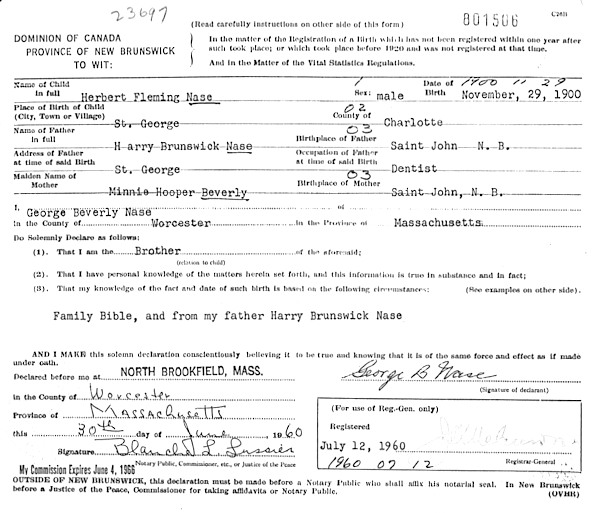 23697
801506
C26B
(Read carefully instructions on other side of this form)
DOMINION OF CANADA
PROVINCE OF NEW BRUNSWICK
TO WIT:
In the matter of the Registration of a Birth which has not been registered within one year after
such took place; or which took place before 1920 and was not registered at that time.
And in the Matter of the Vital Statistics Regulations.
Name of Child in full Herbert Fleming Nase Sex: male 1 Date of Birth November, 29, 1900 1900 11 29
Place of Birth of Child (City, Town or Village) St. George County of Charlotte 02
Name of Father in full Harry Brunswick Nase Birthplace of Father Saint John N. B. 03
Address of Father at time of said Birth St. George Occupation of Father at time of said Birth Dentist
Maiden Name of Mother Minnie Hooper Beverly Birthplace of Mother Saint John, N. B. 03
I, George Beverly Nase of
in the County of Worcester in the Province of Massachusetts
Do Solemnly Declare as follows:
(1). That I am the Brother of the aforesaid;
(relation to child)
(2). That I have personal knowledge of the matters herein set forth, and this information is true in substance and in fact;
(3). That my knowledge of the fact and date of such birth is based on the following circumstances: (See examples on other side).
Family Bible, and from my father Harry Brunswick Nase
AND I MAKE this solemn declaration conscientiously believing it to be true and knowing that it is of the same force and effect as if made
under oath.
Declared before me at NORTH BROOKFIELD, MASS.
George B Nase
(Signature of declarant)
in the County of Worcester
Province of Massachusetts
this 30th day of June, 1960
Signature Blanche L.
Notary Public, Commissioner, etc., or Justice of the Peace
My Commission Expires June 4, 1966
(For use of Reg.-Gen. only)
Registered
July 12, 1960
1960 07 12
Registrar-General
OUTSIDE OF NEW BRUNSWICK, this declaration must be made before a Notary Public who shall affix his notarial seal. In New Brunswick
before a Justice of the Peace, Commissioner for taking affidavits or Notary Public.
(OVER)